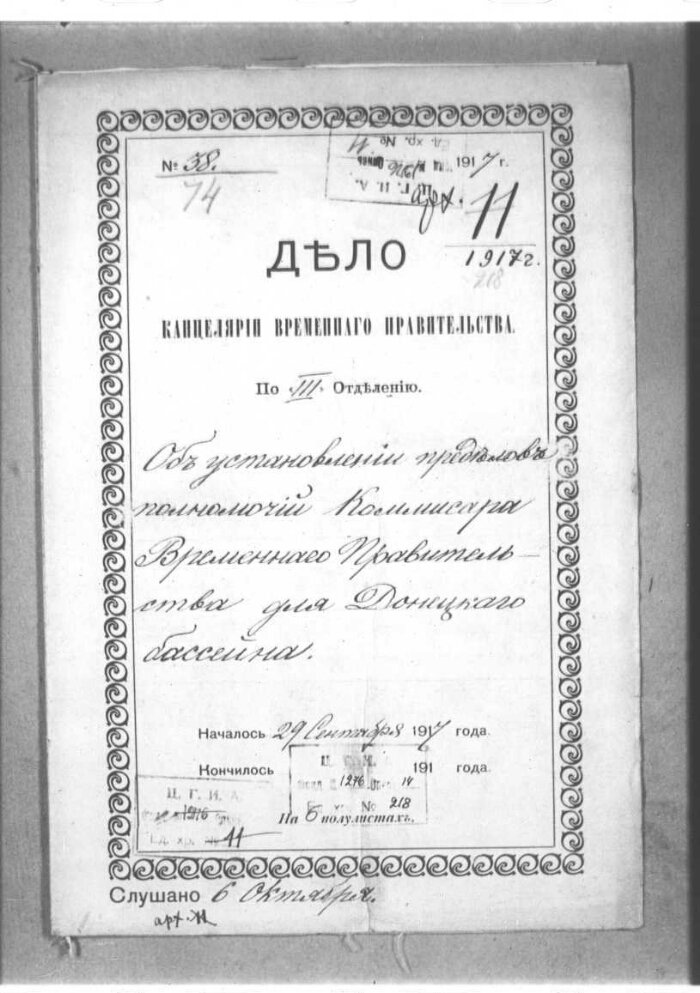 № 38.
74
1917 г.
Ц. Г. И. А.
Ед. хр. №
арх. 11
1917 г.
218
ДѢЛО
КАНЦЕЛЯРІИ ВРЕМЕННАГО ПРАВИТЕЛЬСТВА.
По III Отдѣленію.
Объ установленіи предѣловъ
полномочій Коммисара
Временнаго Правитель-
ства для Донецкаго
бассейна.
Началось 29 Сентября 1917 года.
Кончилось 191 года.
Ц. Г. И. А.
1276 14
№ 218
На 6 полулистахъ.
Ц. Г. И. А.
1276
Ед. хр. № 11
Слушано 6 Октября.
арх.